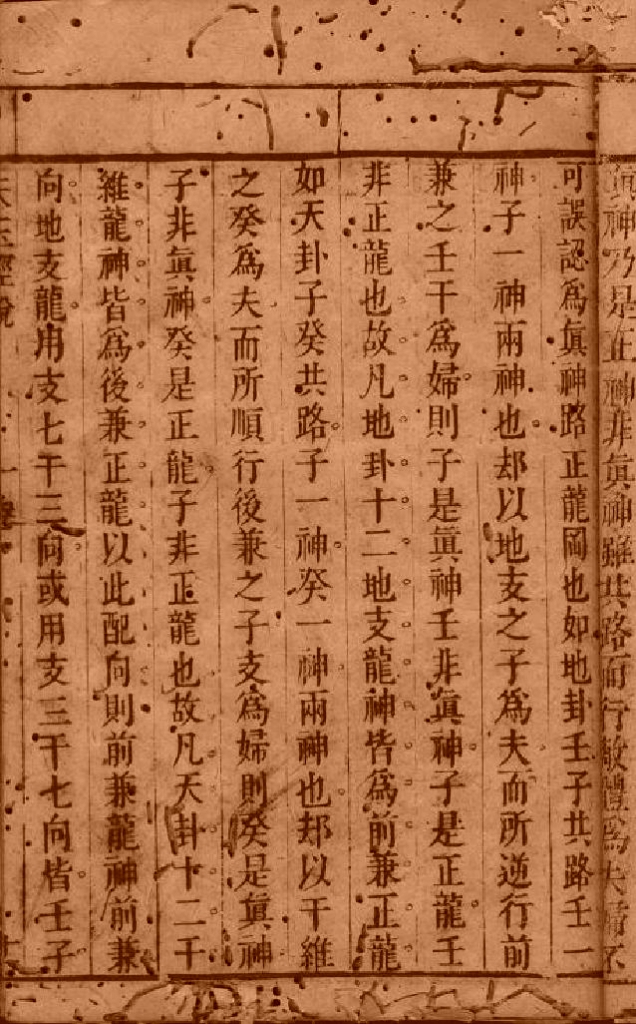 眞神乃是正神非眞神雖共路而行故體爲夫婦不
可誤認爲眞神路正龍岡也如地卦壬子共路壬一
神子一神兩神也却以地支之子爲夫而所逆行前
兼之壬干爲婦則子是眞神壬非眞神子是正龍壬
非正龍也故凡地卦十二地支龍神皆爲前兼正龍
如天卦子癸共路子一神癸一神兩神也却以干維
之癸爲夫而所順行後兼之子支爲婦則癸是眞神
子非眞神癸是正龍子非正龍也故凡天卦十二干
維龍神皆爲後兼正龍以此配向則前兼龍神前兼
向地支龍用支七干三向或用支三干七向皆壬子
天玉經說